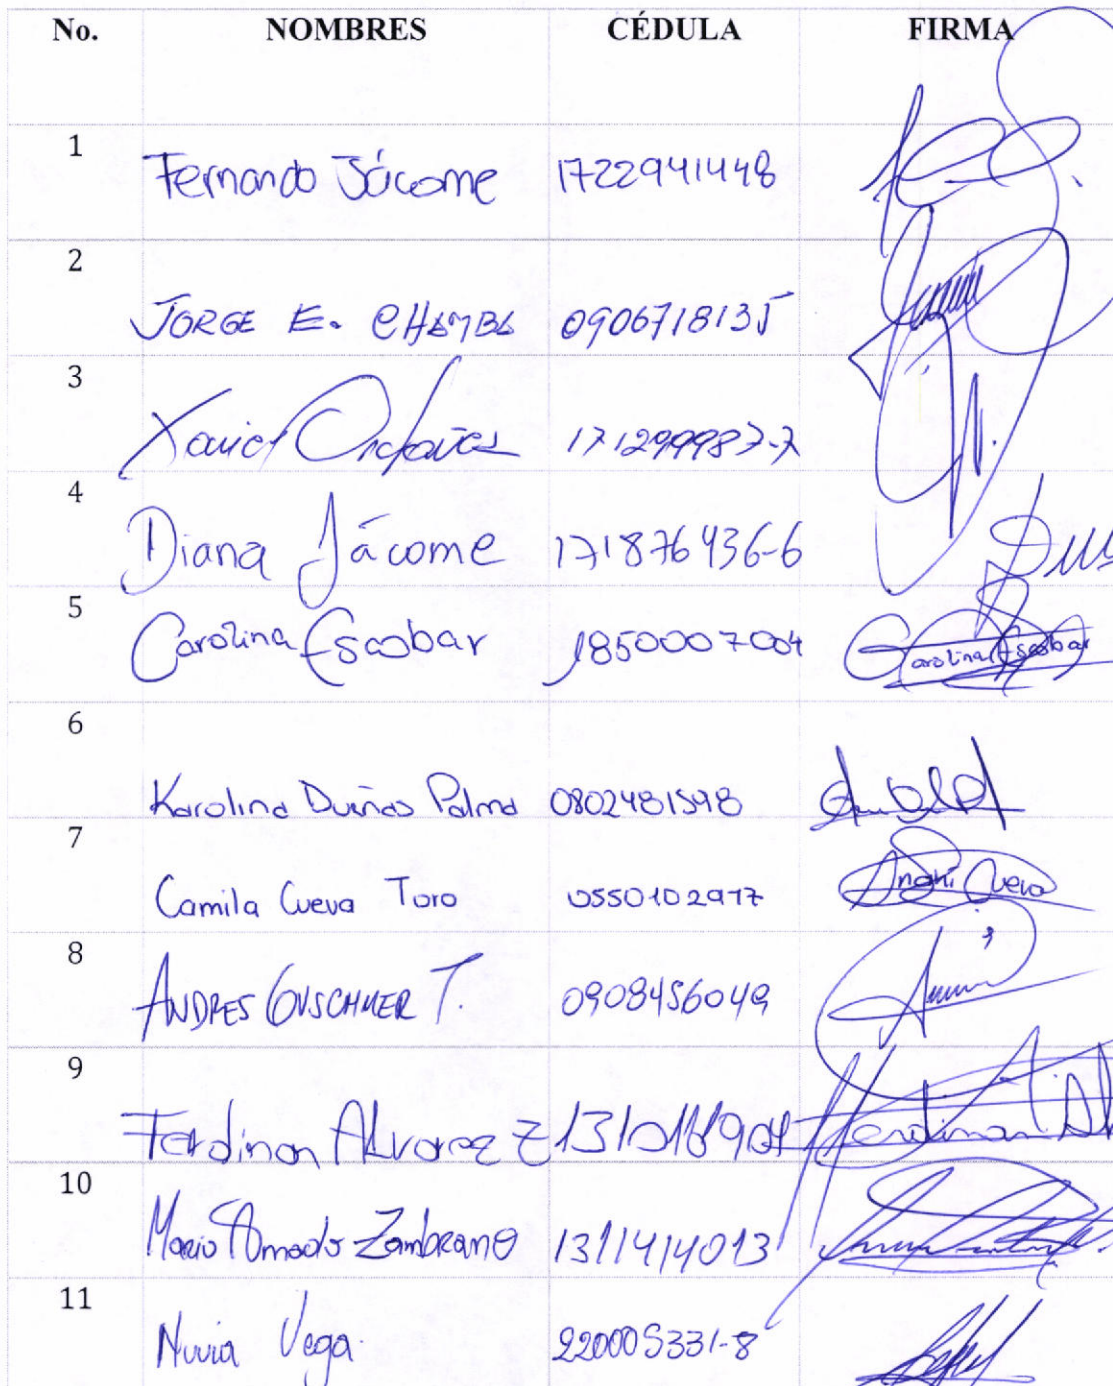 No. NOMBRES CÉDULA FIRMA
1 Fernando Jácome 1722941448
2 JORGE E. CHAMBA 0906718135
3 Xavier Ordoñez 171299987-7
4 Diana Jácome 171876436-6
5 Carolina Escobar 1850007004 Carolina Escobar
6 Karolina Dueñas Palma 0802481598
7 Camila Cueva Toro 0550102917 Anahi Cueva
8 ANDRES GUSCHMER T. 0908456049
9 Ferdinan Alvarez Z Ferdinan Al
10 Mario Amado Zambrano 1311414013
11 Nuvia Vega 220005331-8